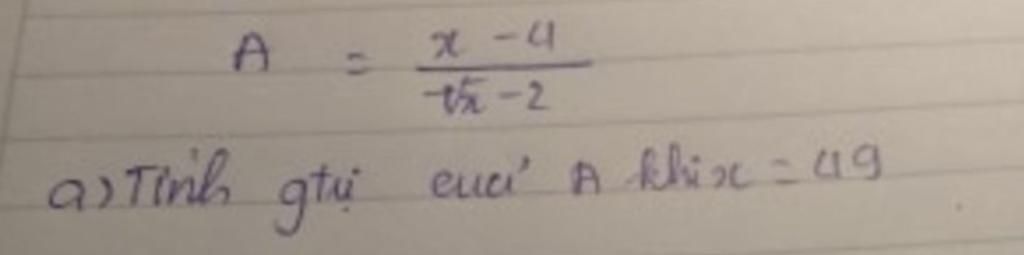 A = \frac{x - 4}{\sqrt{x} - 2}
a) Tính gtrị của A khi x = 49